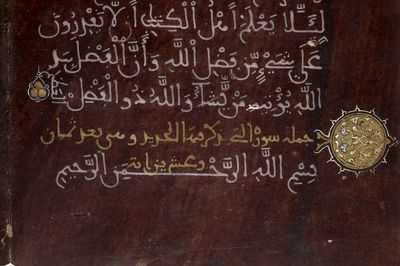 لِّئَلَّا يَعْلَمَ أَهْلُ الْكِتَٰبِ أَلَّا يَقْدِرُونَ
عَلَىٰ شَيْءٍ مِّن فَضْلِ اللَّهِ وَأَنَّ الْفَضْلَ بِيَدِ
اللَّهِ يُؤْتِيهِ مَن يَشَاءُ وَاللَّهُ ذُو الْفَضْلِ
جملة سورة فيها الحديد وهي ثمان
وعشرين اية
بِسْمِ اللَّهِ الرَّحْمَنِ الرَّحِيمِ